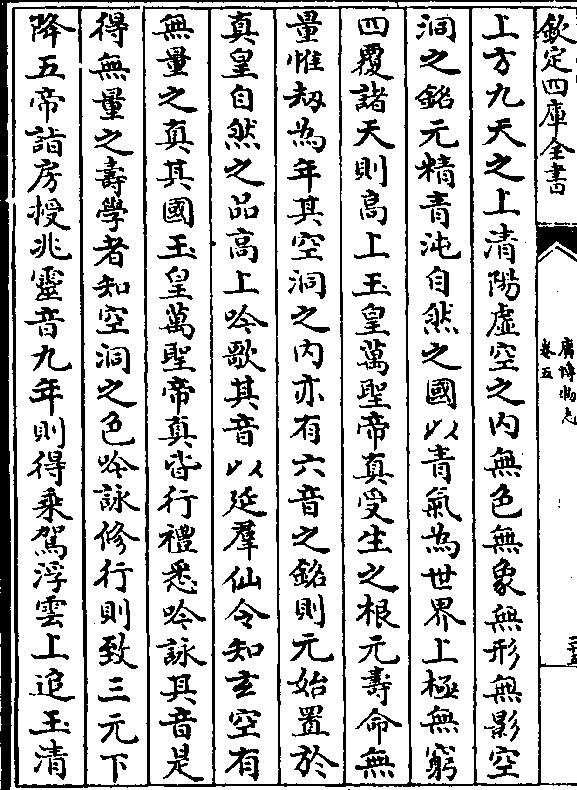 欽定四庫全書
廣博物志
卷五
上方九天之上清陽虛空之内無色無象無形無影空
洞之銘元精青沌自然之國以青氣為世界上極無窮
四覆諸天則高上玉皇萬聖帝真受生之根元壽命無
量惟刼為年其空洞之内亦有六音之銘則元始置於
真皇自然之品高上吟歌其音以延羣仙令知玄空有
無量之真其國玉皇萬聖帝真皆行禮悉吟詠其音是
得無量之壽學者知空洞之色吟詠修行則致三元下
降五帝詣房授兆靈音九年則得乘駕浮雲上追玉清